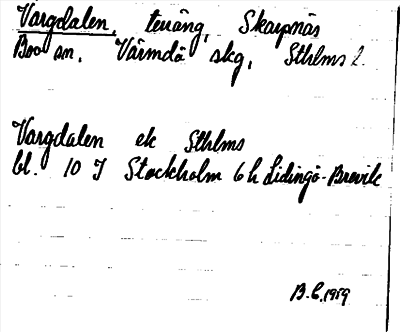 Vargdalen, teräng, Skarpnäs
Boo sn. Värmdö skg, Sthlms l.
Vargdalen ek Sthlms
bl. 10 I Stockholm 6 h Lidingö-Brevik
B.C. 1959